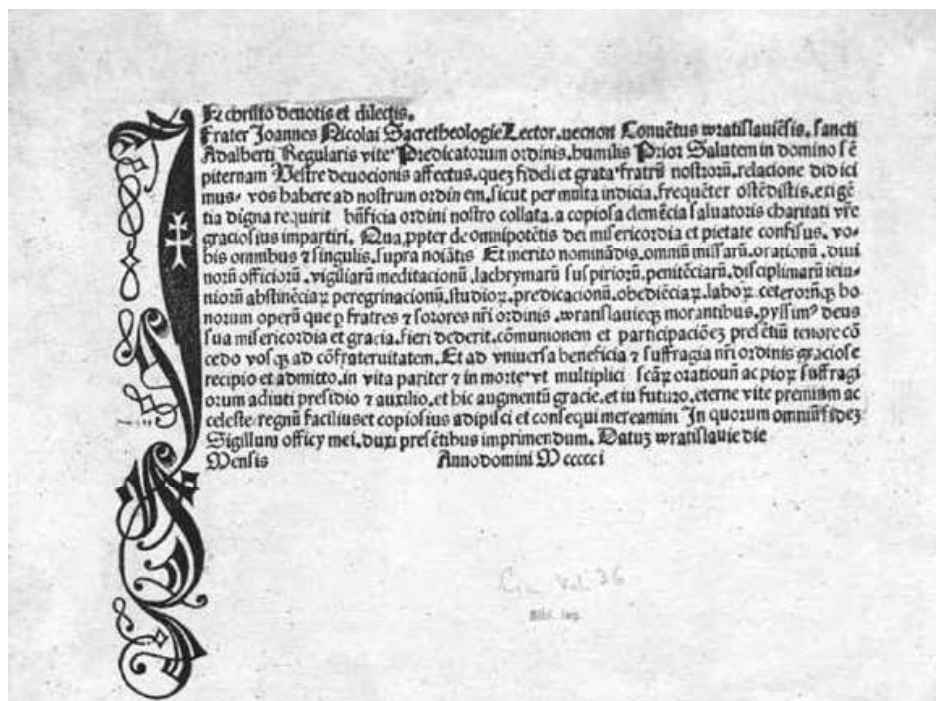 IN christo deuotis et dilectis.
Frater Joannes Nicolai Sacretheologie Lector. necnon Conuētus wratislauiēsis. sancti
Adalberti Regularis vite Predicatorum ordinis. humilis Prior Salutem in domino sē
piternam Vestre deuocionis affectus. quez fideli et grata fratrū nostrorū. relacione didici
mus. vos habere ad nostrum ordinem. sicut per multa indicia. frequēter ostēdistis. exigē
tia digna requirit bn̄ficia ordini nostro collata. a copiosa clemēcia saluatoris charitati vr̄e
graciosius impartiri. Quapp̱ter de omnipotētis dei misericordia et pietate confisus. vo⸗
bis omnibus ⁊ singulis. supra noīatis Et merito nominādis. omniū missarū. orationū. diui
norū officiorū. vigiliarū meditacionū. lachrymarū suspiriorū. penitēciarū. disciplinarū ieiu⸗
niorū abstinēciaꝝ peregrinacionū. studioꝝ. predicacionū. obediēciaꝝ. laboꝝ. ceterorūqꝫ bo
norum operū que ꝑ fratres ⁊ sorores nr̄i ordinis. wratislauieqꝫ morantibus. pyssimꝰ deus
sua misericordia et gracia. fieri dederit. cōmunionem et participaciōeꝫ presētiū tenore cō
cedo vosqꝫ ad cōfraternitatem. Et ad vniuersa beneficia ⁊ suffragia nr̄i ordinis graciose
recipio et admitto. in vita pariter ⁊ in morte. vt multiplici scāꝝ orationū ac pioꝝ suffragi
orum adiuti presidio ⁊ auxilio. et hic augmentū gracie. et in futuro. eterne vite premium ac
celeste regnū facilius et copiosius adipisci et consequi mereamini In quorum omniū fidez
Sigillum officy mei. duxi presētibus imprimendum. Datuz wratislauie die
Mensis Anno domini Mcccccci
Vol. 36
Bibl. Jag.